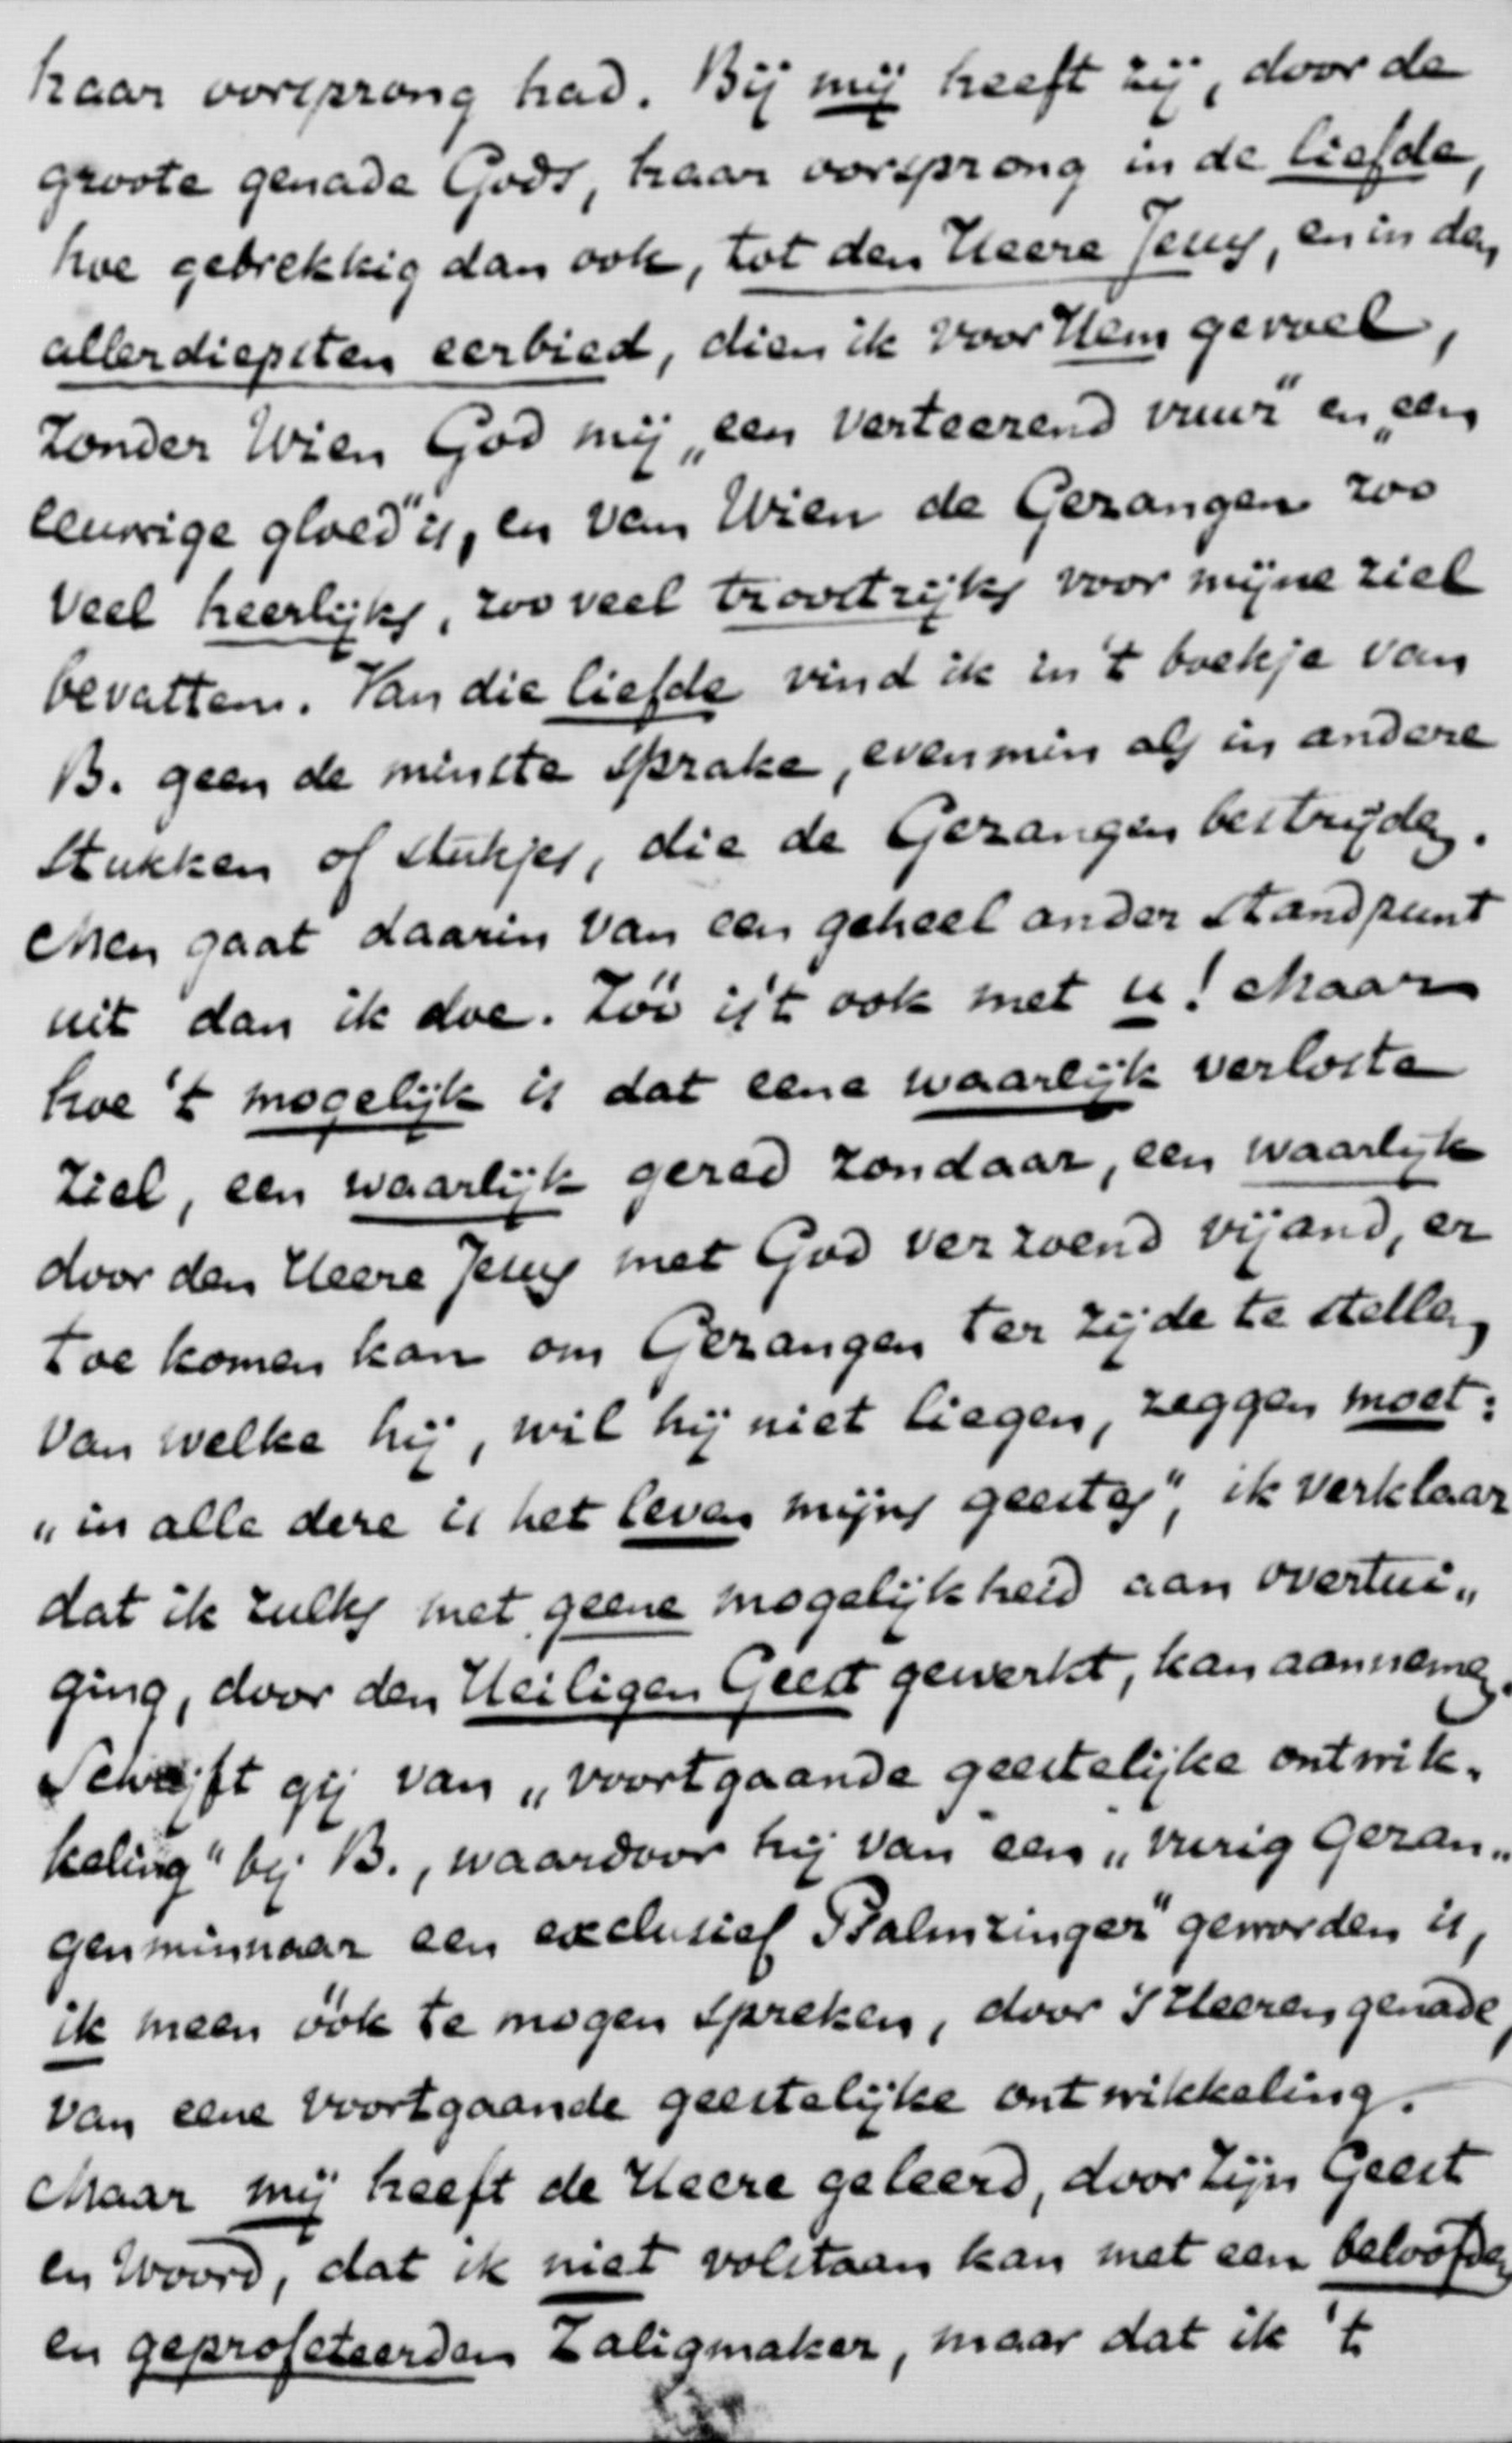 haar oorsprong had. Bij mij heeft zij, door de
groote genade Gods, haar oorsprong in de liefde,
hoe gebrekkig dan ook, tot den Heere Jesus, en in den
allerdiepsten eerbied, dien ik voor Hem gevoel,
Zonder Wien God mij „een verteerend vuur" en „een
eeuwige gloed" is, en van Wien de Gezangen zoo
veel heerlijks, zoo veel troostrijks voor mijne ziel
bevatten. Van die liefde vind ik in 't boekje van
B. geen de minste sprake, evenmin als in andere
stukken of stukjes, die de Gezangen bestrijden.
Men gaat daarin van een geheel ander standpunt
uit dan ik doe. Zóó is 't ook met u! Maar
hoe 't mogelijk is dat eene waarlijk verloste
ziel, een waarlijk gered zondaar, een waarlijk
door den Heere Jesus met God verzoend vijand, er
toe komen kan om Gezangen ter zijde te stellen,
van welke hij, wil hij niet liegen, zeggen moet:
„in alle deze is het leven mijns geestes", ik verklaar
dat ik zulks met geene mogelijkheid aan overtui„
ging, door den Heiligen Geest gewerkt, kan aannemen.
Schrijft gij van „voortgaande geestelijke ontwik„
keling" bij B., waardoor hij van een „vurig Gezan„
genminnaar een exclusief Psalmzinger" geworden is,
ik meen óók te mogen spreken, door 's Heeren genade,
van eene voortgaande geestelijke ontwikkeling.
Maar mij heeft de Heere geleerd, door Zijn Geest
en Woord, dat ik niet volstaan kan met een beloofden
en geprofeteerden Zaligmaker, maar dat ik 't